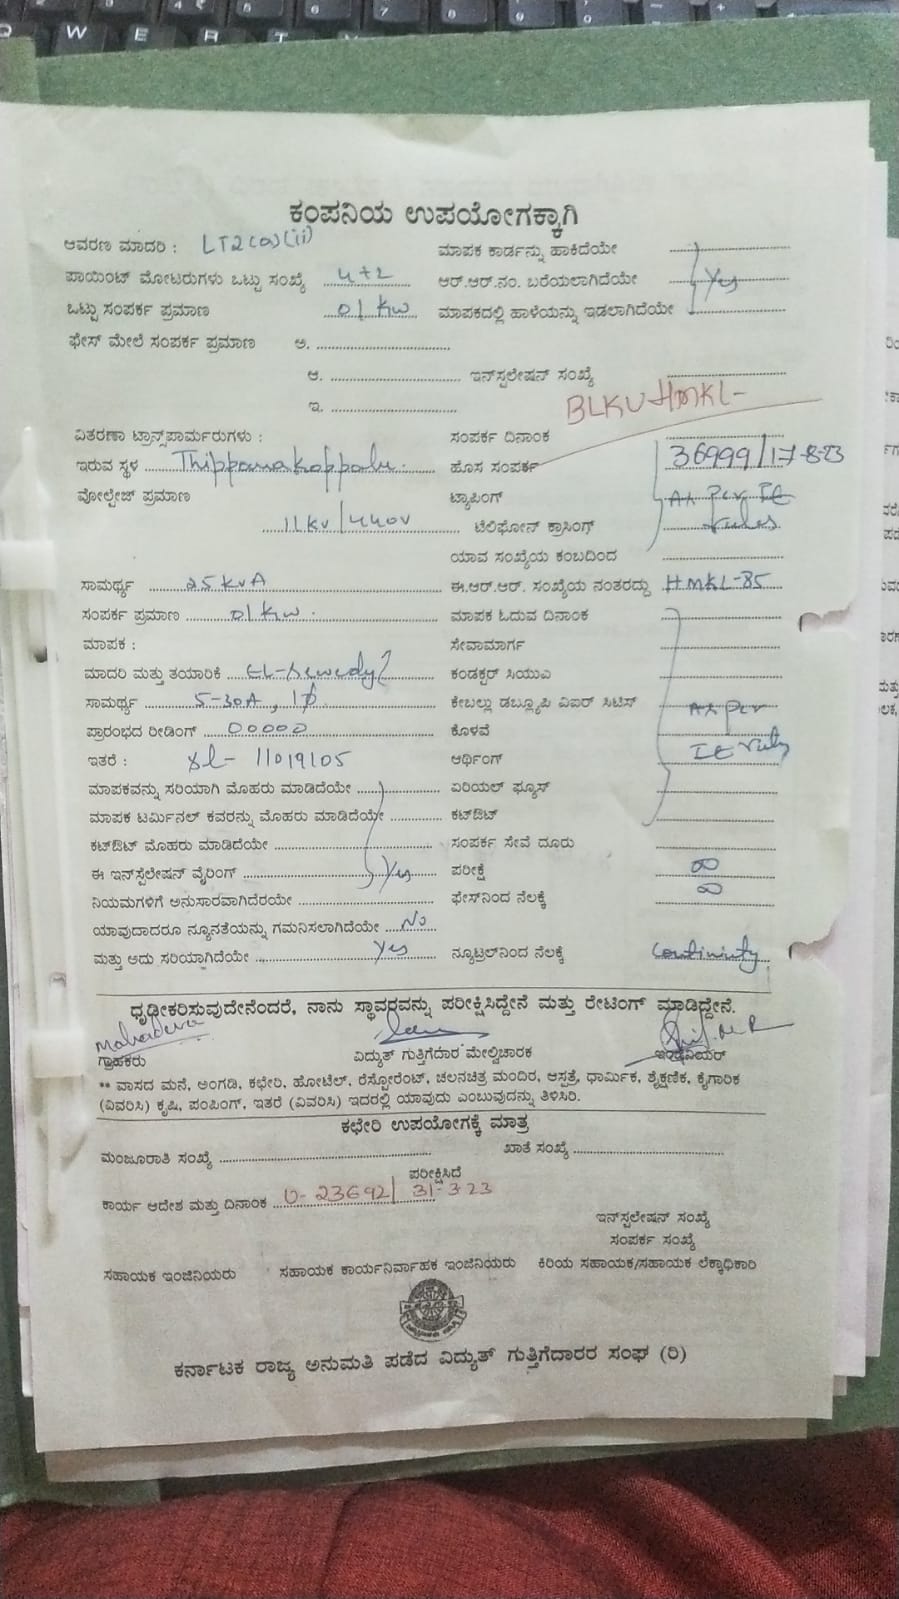 ಕಂಪನಿಯ ಉಪಯೋಗಕ್ಕಾಗಿ
ಆವರಣ ಮಾದರಿ : LT2(a)(ii) ಮಾಪಕ ಕಾರ್ಡನ್ನು ಹಾಕಿದೆಯೇ
ಪಾಯಿಂಟ್ ಮೋಟರುಗಳು ಒಟ್ಟು ಸಂಖ್ಯೆ 4+2 ಆರ್.ಆರ್.ನಂ. ಬರೆಯಲಾಗಿದೆಯೇ Yes
ಒಟ್ಟು ಸಂಪರ್ಕ ಪ್ರಮಾಣ 01 KW ಮಾಪಕದಲ್ಲಿ ಹಾಳೆಯನ್ನು ಇಡಲಾಗಿದೆಯೇ
ಫೇಸ್ ಮೇಲೆ ಸಂಪರ್ಕ ಪ್ರಮಾಣ ಅ.
ಆ. ಇನ್‌ಸ್ಪಲೇಷನ್ ಸಂಖ್ಯೆ
ಇ. BLKV HMKL-
ವಿತರಣಾ ಟ್ರಾನ್ಸ್‌ಪಾರ್ಮರುಗಳು : ಸಂಪರ್ಕ ದಿನಾಂಕ
ಇರುವ ಸ್ಥಳ Thippanakoppalu. ಹೊಸ ಸಂಪರ್ಕ 36999/17-8-23
ವೋಲ್ಟೇಜ್ ಪ್ರಮಾಣ ಟ್ಯಾಪಿಂಗ್ As per IE
11 KV/440V ಟೆಲಿಫೋನ್ ಕ್ರಾಸಿಂಗ್ rules
ಯಾವ ಸಂಖ್ಯೆಯ ಕಂಬದಿಂದ
ಸಾಮರ್ಥ್ಯ 25 KVA ಈ.ಆರ್.ಆರ್. ಸಂಖ್ಯೆಯ ನಂತರದ್ದು HMKL-85
ಸಂಪರ್ಕ ಪ್ರಮಾಣ 01 KW. ಮಾಪಕ ಓದುವ ದಿನಾಂಕ
ಮಾಪಕ : ಸೇವಾಮಾರ್ಗ
ಮಾದರಿ ಮತ್ತು ತಯಾರಿಕೆ ಕಂಡಕ್ಟರ್ ಸಿಯುಎ
ಸಾಮರ್ಥ್ಯ 5-30A, 1ϕ ಕೇಬಲ್ಲು ಡಬ್ಲ್ಯೂಪಿ ಎಐರ್ ಸಿಟಿಸ್ As per
ಪ್ರಾರಂಭದ ರೀಡಿಂಗ್ 00000 ಕೊಳವೆ
ಇತರೆ : Sl- 11019105 ಅರ್ಥಿಂಗ್ IE rules
ಮಾಪಕವನ್ನು ಸರಿಯಾಗಿ ಮೊಹರು ಮಾಡಿದೆಯೇ ಏರಿಯಲ್ ಫ್ಯೂಸ್
ಮಾಪಕ ಟರ್ಮಿನಲ್ ಕವರನ್ನು ಮೊಹರು ಮಾಡಿದೆಯೇ ಕಟ್‌ಔಟ್
ಕಟ್‌ಔಟ್ ಮೊಹರು ಮಾಡಿದೆಯೇ ಸಂಪರ್ಕ ಸೇವೆ ದೂರು
ಈ ಇನ್‌ಸ್ಪೆಲೇಷನ್ ವೈರಿಂಗ್ Yes ಪರೀಕ್ಷೆ ∞
ನಿಯಮಗಳಿಗೆ ಅನುಸಾರವಾಗಿದೆರಯೇ ಫೇಸ್‌ನಿಂದ ನೆಲಕ್ಕೆ ∞
ಯಾವುದಾದರೂ ನ್ಯೂನತೆಯನ್ನು ಗಮನಿಸಲಾಗಿದೆಯೇ No
ಮತ್ತು ಅದು ಸರಿಯಾಗಿದೆಯೇ Yes ನ್ಯೂಟ್ರಲ್‌ನಿಂದ ನೆಲಕ್ಕೆ Continuity
ಧೃಡೀಕರಿಸುವುದೇನೆಂದರೆ, ನಾನು ಸ್ಥಾವರವನ್ನು ಪರೀಕ್ಷಿಸಿದ್ದೇನೆ ಮತ್ತು ರೇಟಿಂಗ್ ಮಾಡಿದ್ದೇನೆ.
Mahadeva
ಗ್ರಾಹಕರು ವಿದ್ಯುತ್ ಗುತ್ತಿಗೆದಾರ ಮೇಲ್ವಿಚಾರಕ ಇಂಜಿನಿಯರ್
** ವಾಸದ ಮನೆ, ಅಂಗಡಿ, ಕಛೇರಿ, ಹೋಟೆಲ್, ರೆಸ್ಟೋರೆಂಟ್, ಚಲನಚಿತ್ರ ಮಂದಿರ, ಆಸ್ಪತ್ರೆ, ಧಾರ್ಮಿಕ, ಶೈಕ್ಷಣಿಕ, ಕೈಗಾರಿಕ
(ವಿವರಿಸಿ) ಕೃಷಿ, ಪಂಪಿಂಗ್, ಇತರೆ (ವಿವರಿಸಿ) ಇದರಲ್ಲಿ ಯಾವುದು ಎಂಬುವುದನ್ನು ತಿಳಿಸಿರಿ.
ಕಛೇರಿ ಉಪಯೋಗಕ್ಕೆ ಮಾತ್ರ
ಮಂಜೂರಾತಿ ಸಂಖ್ಯೆ ಖಾತೆ ಸಂಖ್ಯೆ
ಪರೀಕ್ಷಿಸಿದೆ
ಕಾರ್ಯ ಆದೇಶ ಮತ್ತು ದಿನಾಂಕ 0- 23692/ 31-3-23
ಇನ್‌ಸ್ಪಲೇಷನ್ ಸಂಖ್ಯೆ
ಸಂಪರ್ಕ ಸಂಖ್ಯೆ
ಸಹಾಯಕ ಇಂಜಿನಿಯರು ಸಹಾಯಕ ಕಾರ್ಯನಿರ್ವಾಹಕ ಇಂಜಿನಿಯರು ಕಿರಿಯ ಸಹಾಯಕ/ಸಹಾಯಕ ಲೆಕ್ಕಾಧಿಕಾರಿ
ಕರ್ನಾಟಕ ರಾಜ್ಯ ಅನುಮತಿ ಪಡೆದ ವಿದ್ಯುತ್ ಗುತ್ತಿಗೆದಾರರ ಸಂಘ (ರಿ)